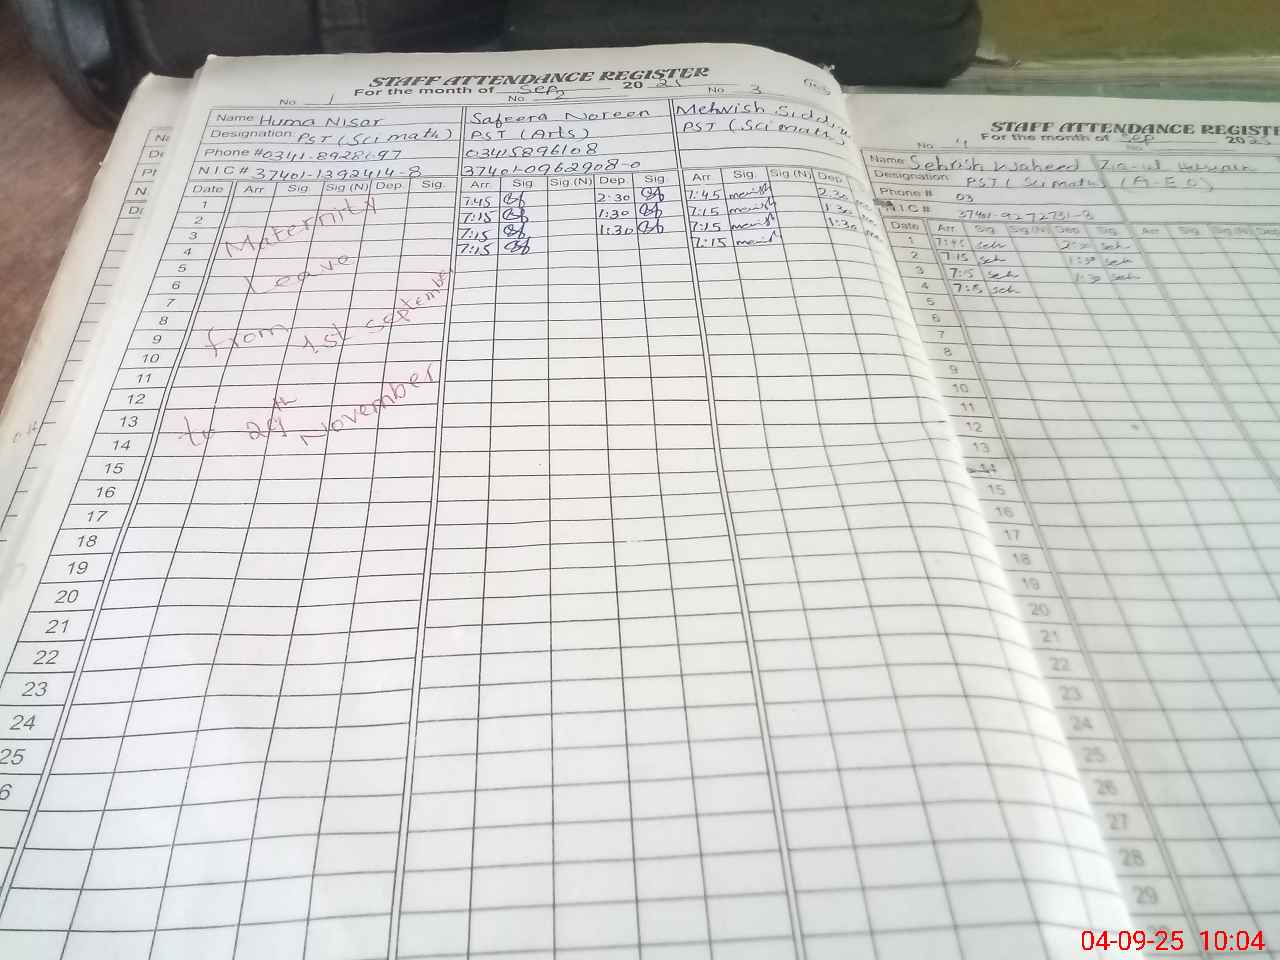 STAFF ATTENDANCE REGISTER
For the month of Sep 20 25
No 1 No 2 No 3
Name Huma Nisar Safeera Noreen Mehvish
Designation: PST (Sci math) PST (Arts) PST (Sci math)
Phone # 03415896108
N.I.C # 37401-1392414-8 37401-0962908-0
Date Arr Sig. Sig (N) Dep. Sig. Arr. Sig. Sig (N) Dep. Sig. Arr. Sig. Sig (N) Dep.
1 7:45 2:30 7:45 2:30
2 7:15 1:30 7:15 1:30
3 7:15 1:30 7:15 1:30
4 7:15 7:15
Maternity
Leave
from 1st september
to 29th November
5
6
7
8
9
10
11
12
13
14
15
16
17
18
19
20
21
22
23
24
25
6
STAFF ATTENDANCE REGISTE
For the month of Sep 2025
No 4 No
Name: Sehrish Waheed Zia-ul
Designation PST (Sci math) (A-E O)
Phone # 03
N.I.C #
Date Arr. Sig. Sig (N) Dep. Sig. Arr. Sig Sig (N) Sig (N) Dep
1 7:45 seh seh
2 7:15 seh 1:30 seh
3 7:15 seh 1:30 seh
4 7:15 seh
5
6
7
8
9
10
11
12
13
14
15
16
17
18
19
20
21
22
23
24
25
26
27
28
29
04-09-25 10:04